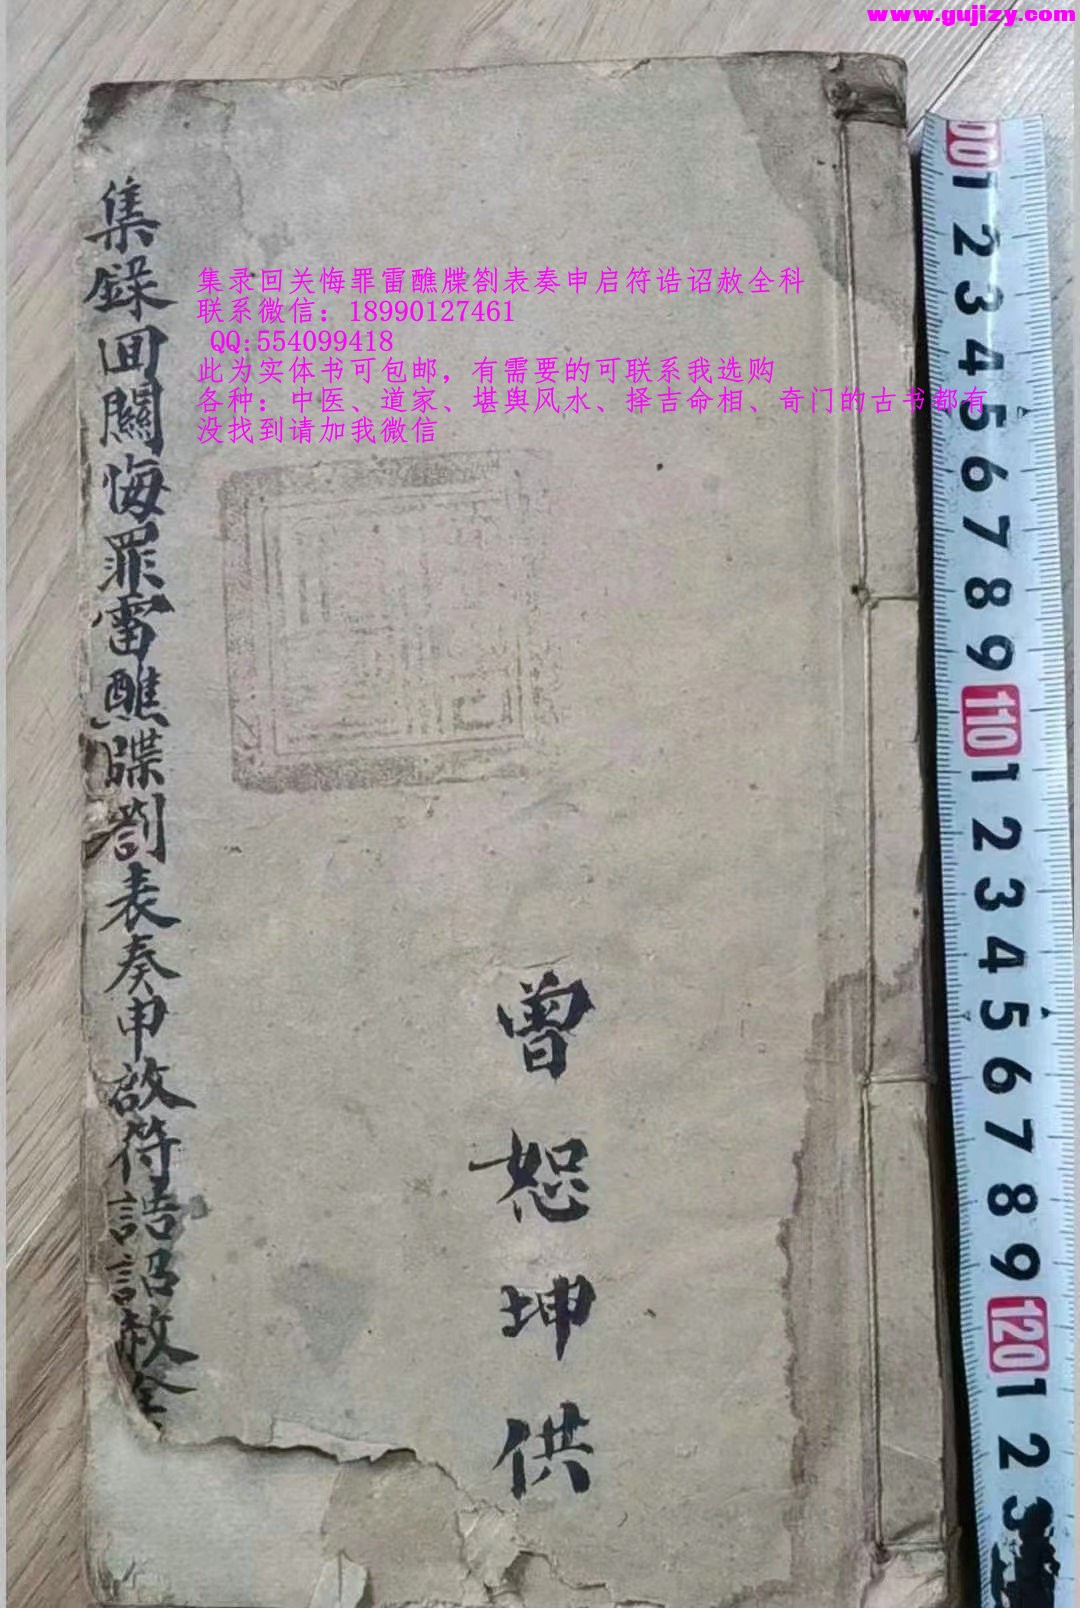 www.gujizy.com
集录回关悔罪雷醮牒劄表奏申启符诰诏赦全科
联系微信：18990127461
QQ:554099418
此为实体书可包邮，有需要的可联系我选购
各种：中医、道家、堪舆风水、择吉命相、奇门的古书都有
没找到请加我微信
集錄回關悔罪雷醮牒劄表奏申啟符誥詔赦全
曾恕坤供
00
1
2
3
4
5
6
7
8
9
110
1
2
3
4
5
6
7
8
9
120
1
2
3